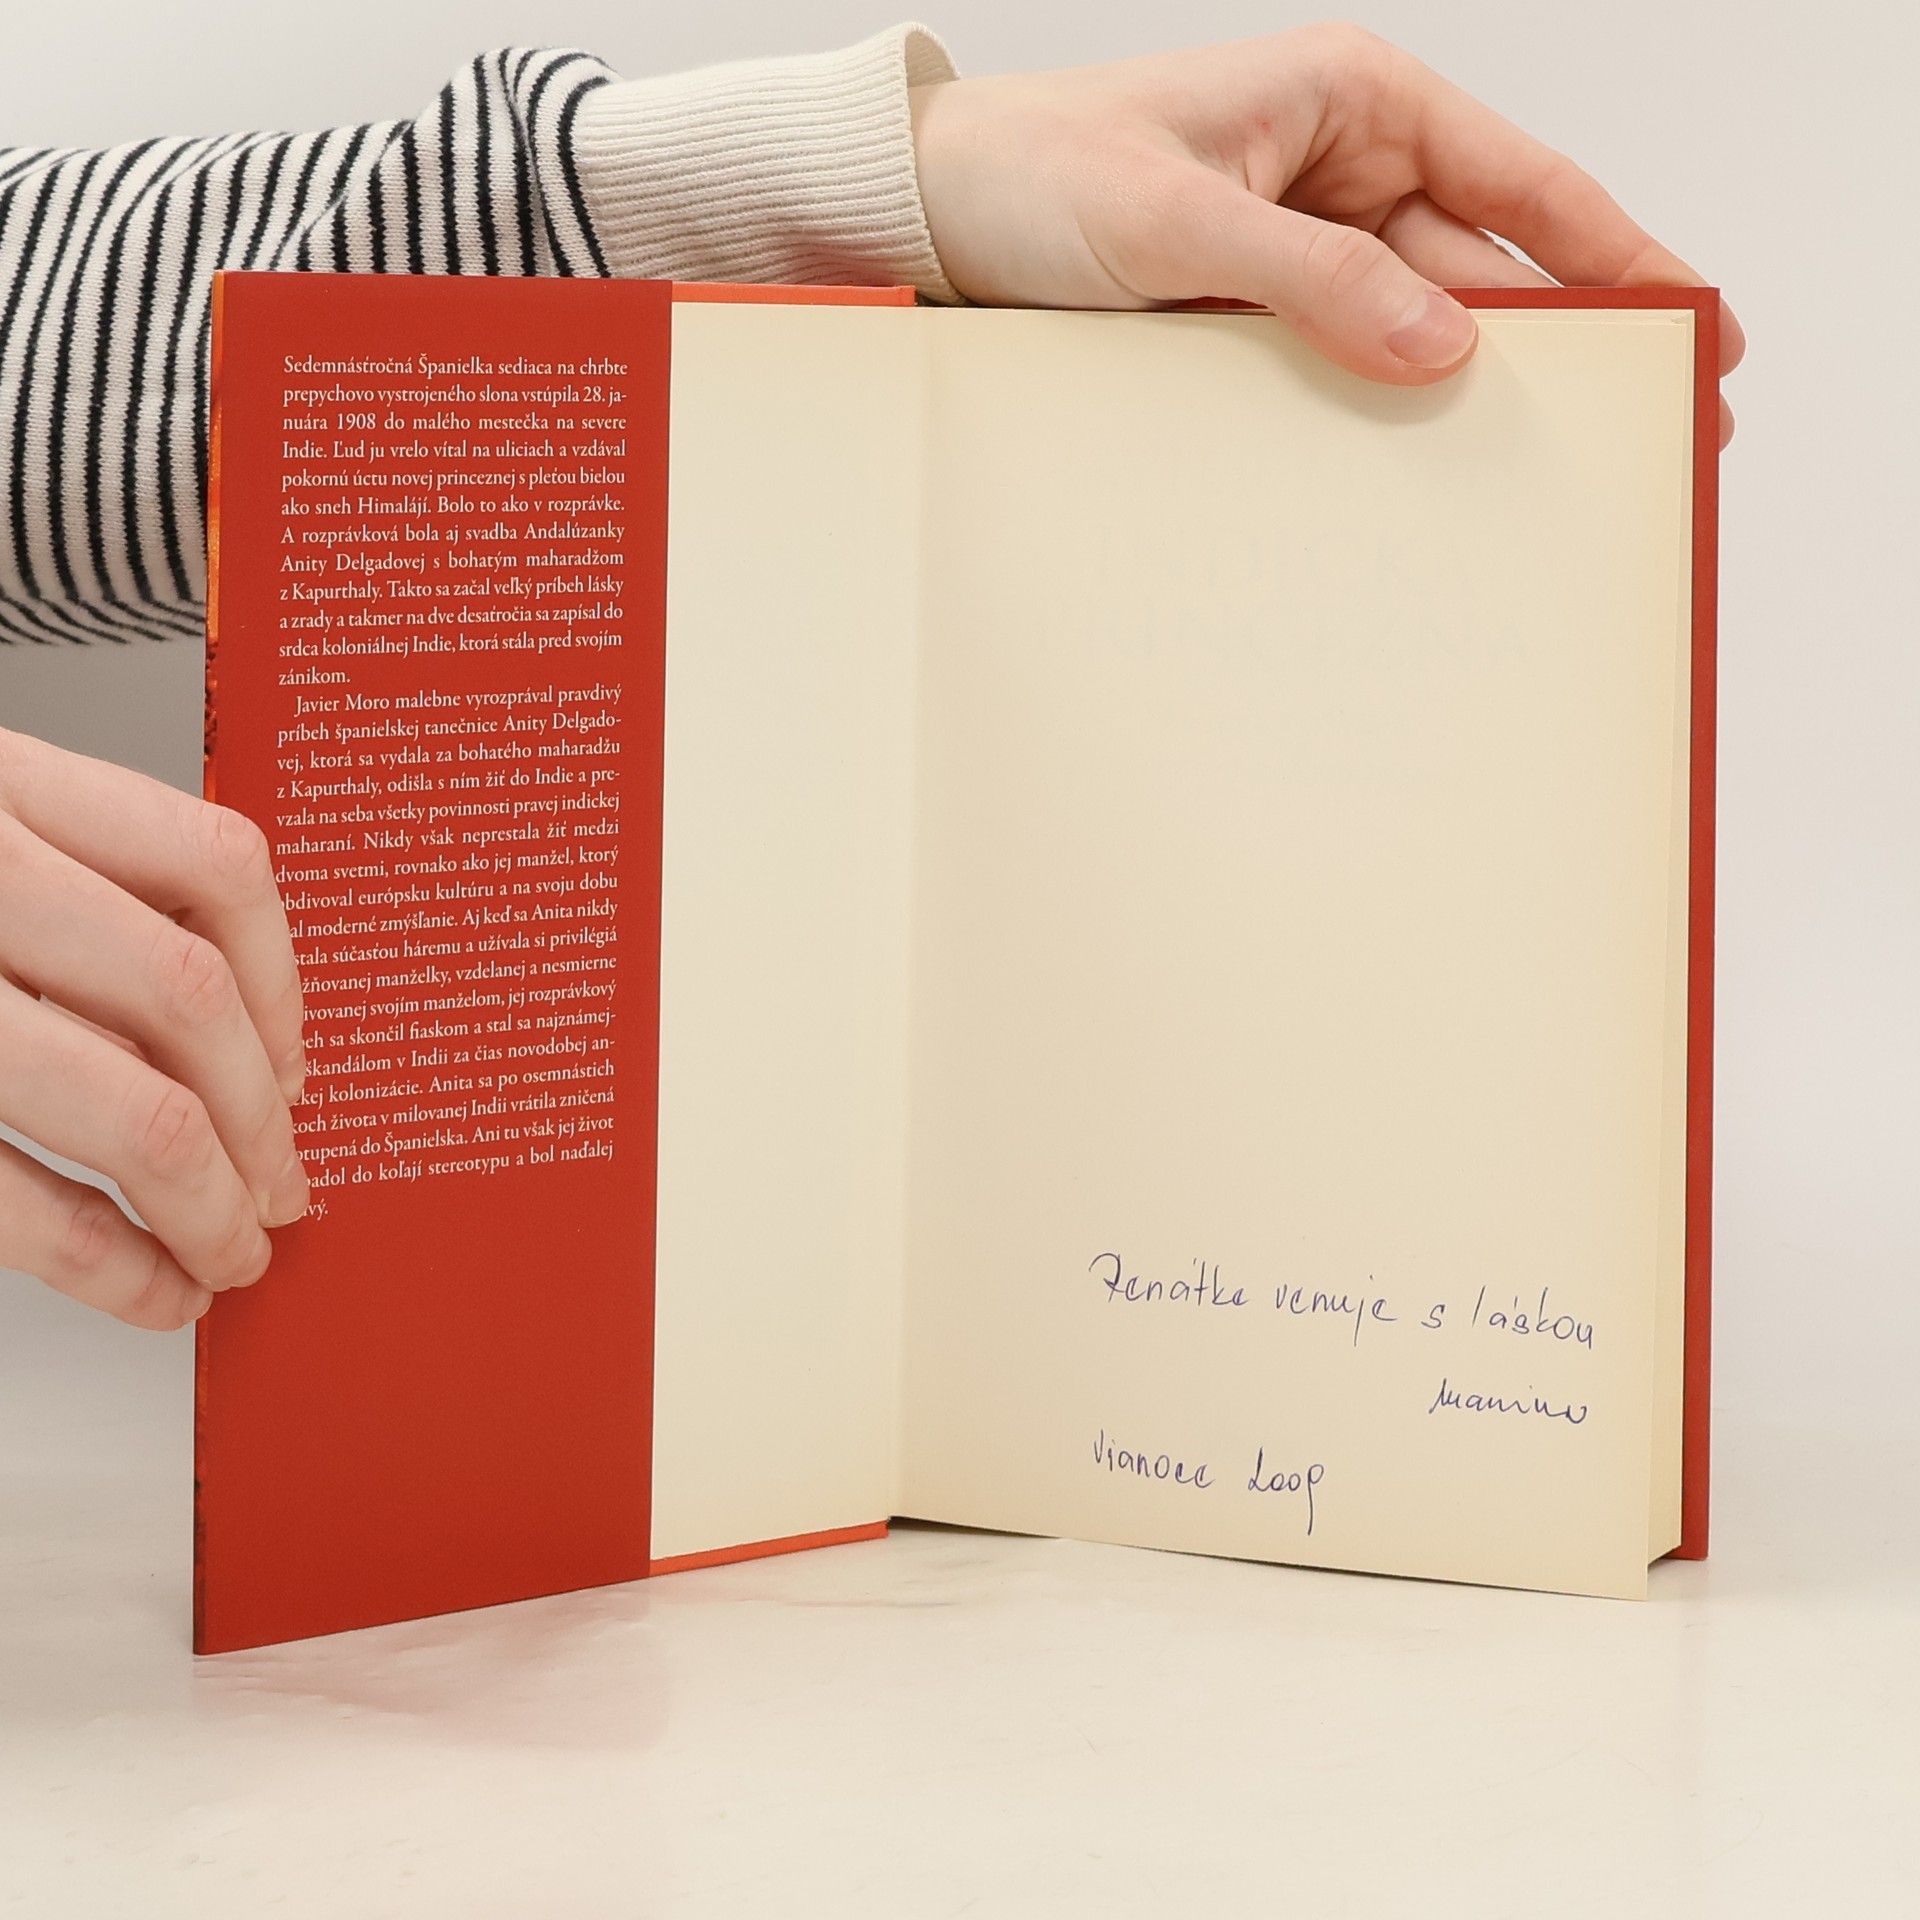 Sedemnásťročná Španielka sediaca na chrbte
prepychovo vystrojeného slona vstúpila 28. ja-
nuára 1908 do malého mestečka na severe
Indie. Ľud ju vrelo vítal na uliciach a vzdával
pokornú úctu novej princeznej s pleťou bielou
ako sneh Himalájí. Bolo to ako v rozprávke.
A rozprávková bola aj svadba Andalúzanky
Anity Delgadovej s bohatým maharadžom
z Kapurthaly. Takto sa začal veľký príbeh lásky
a zrady a takmer na dve desaťročia sa zapísal do
srdca koloniálnej Indie, ktorá stála pred svojím
zánikom.
Javier Moro malebne vyrozprával pravdivý
príbeh španielskej tanečnice Anity Delgado-
vej, ktorá sa vydala za bohatého maharadžu
z Kapurthaly, odišla s ním žiť do Indie a pre-
vzala na seba všetky povinnosti pravej indickej
maharaní. Nikdy však neprestala žiť medzi
dvoma svetmi, rovnako ako jej manžel, ktorý
bdivoval európsku kultúru a na svoju dobu
al moderné zmýšľanie. Aj keď sa Anita nikdy
stala súčasťou háremu a užívala si privilégiá
žňovanej manželky, vzdelanej a nesmierne
ivovanej svojím manželom, jej rozprávkový
eh sa skončil fiaskom a stal sa najznámej-
škandálom v Indii za čias novodobej an-
ckej kolonizácie. Anita sa po osemnástich
koch života v milovanej Indii vrátila zničená
otupená do Španielska. Ani tu však jej život
padol do koľají stereotypu a bol naďalej
ivý.
Renátke venuje s láskou
mamina
Vianoce 2009